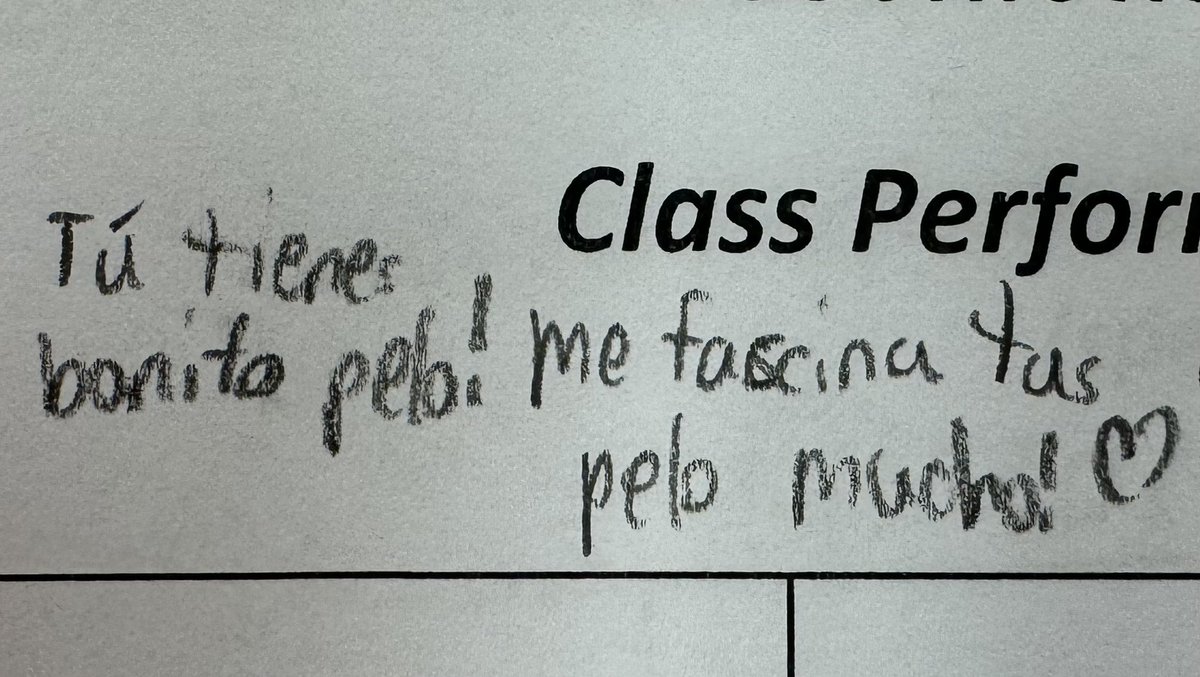 Class Perfor
Tú tienes
bonito pelo! Me fascina tus
pelo mucho! ♡